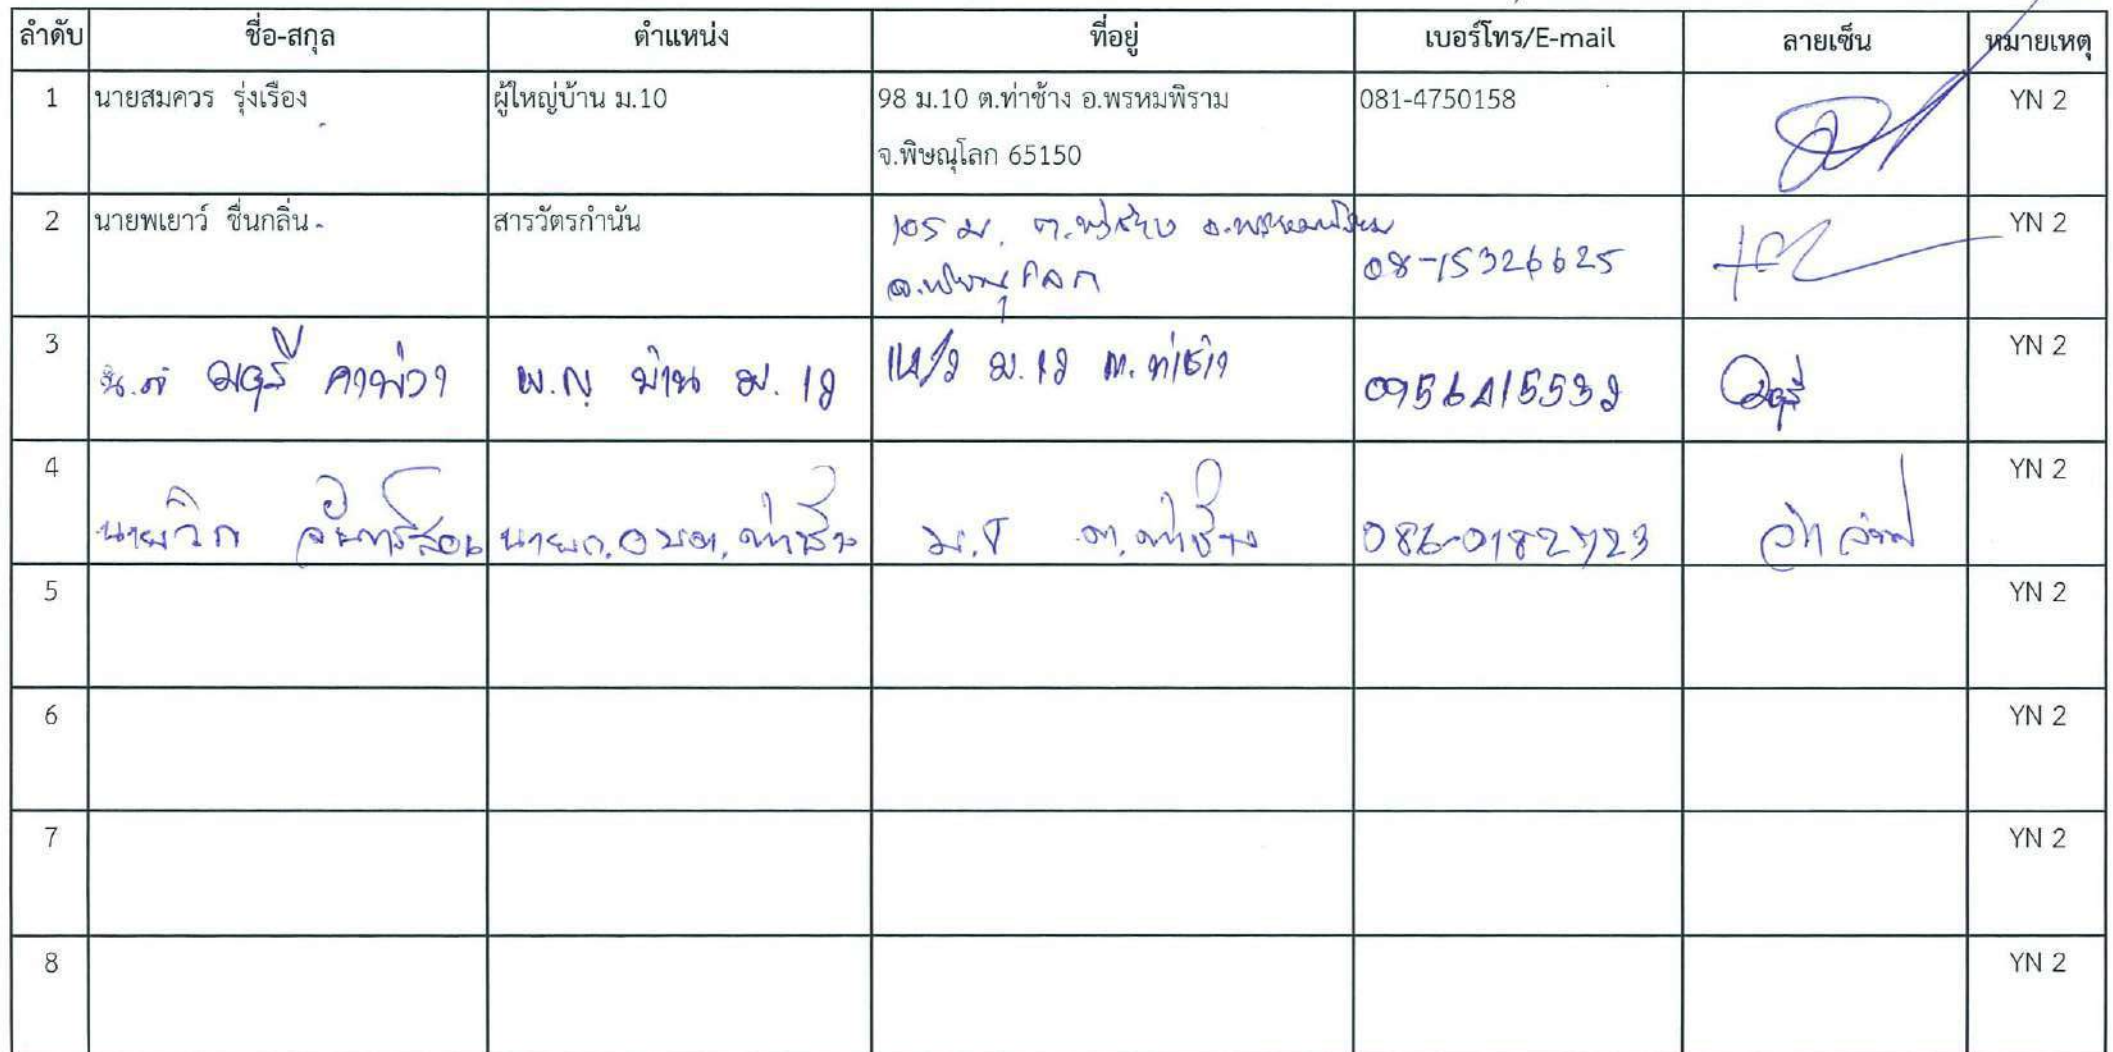 ลำดับ ชื่อ-สกุล ตำแหน่ง ที่อยู่ เบอร์โทร/E-mail ลายเซ็น หมายเหตุ
1 นายสมควร รุ่งเรือง ผู้ใหญ่บ้าน ม.10 98 ม.10 ต.ท่าช้าง อ.พรหมพิราม 081-4750158 YN 2
จ.พิษณุโลก 65150
2 นายพเยาว์ ชื่นกลิ่น สารวัตรกำนัน 105 ม. ต.ท่าช้าง อ.พรหมพิราม YN 2
จ.พิษณุโลก 08-15326625
3 มยุรี ผ.ญ บ้าน ม.12 ม.12 ต.ท่าช้าง 0956415532 มยุรี YN 2
4 นาย นายก.อบต.ท่าช้าง ต.ท่าช้าง 086-0182723 YN 2
5 YN 2
6 YN 2
7 YN 2
8 YN 2